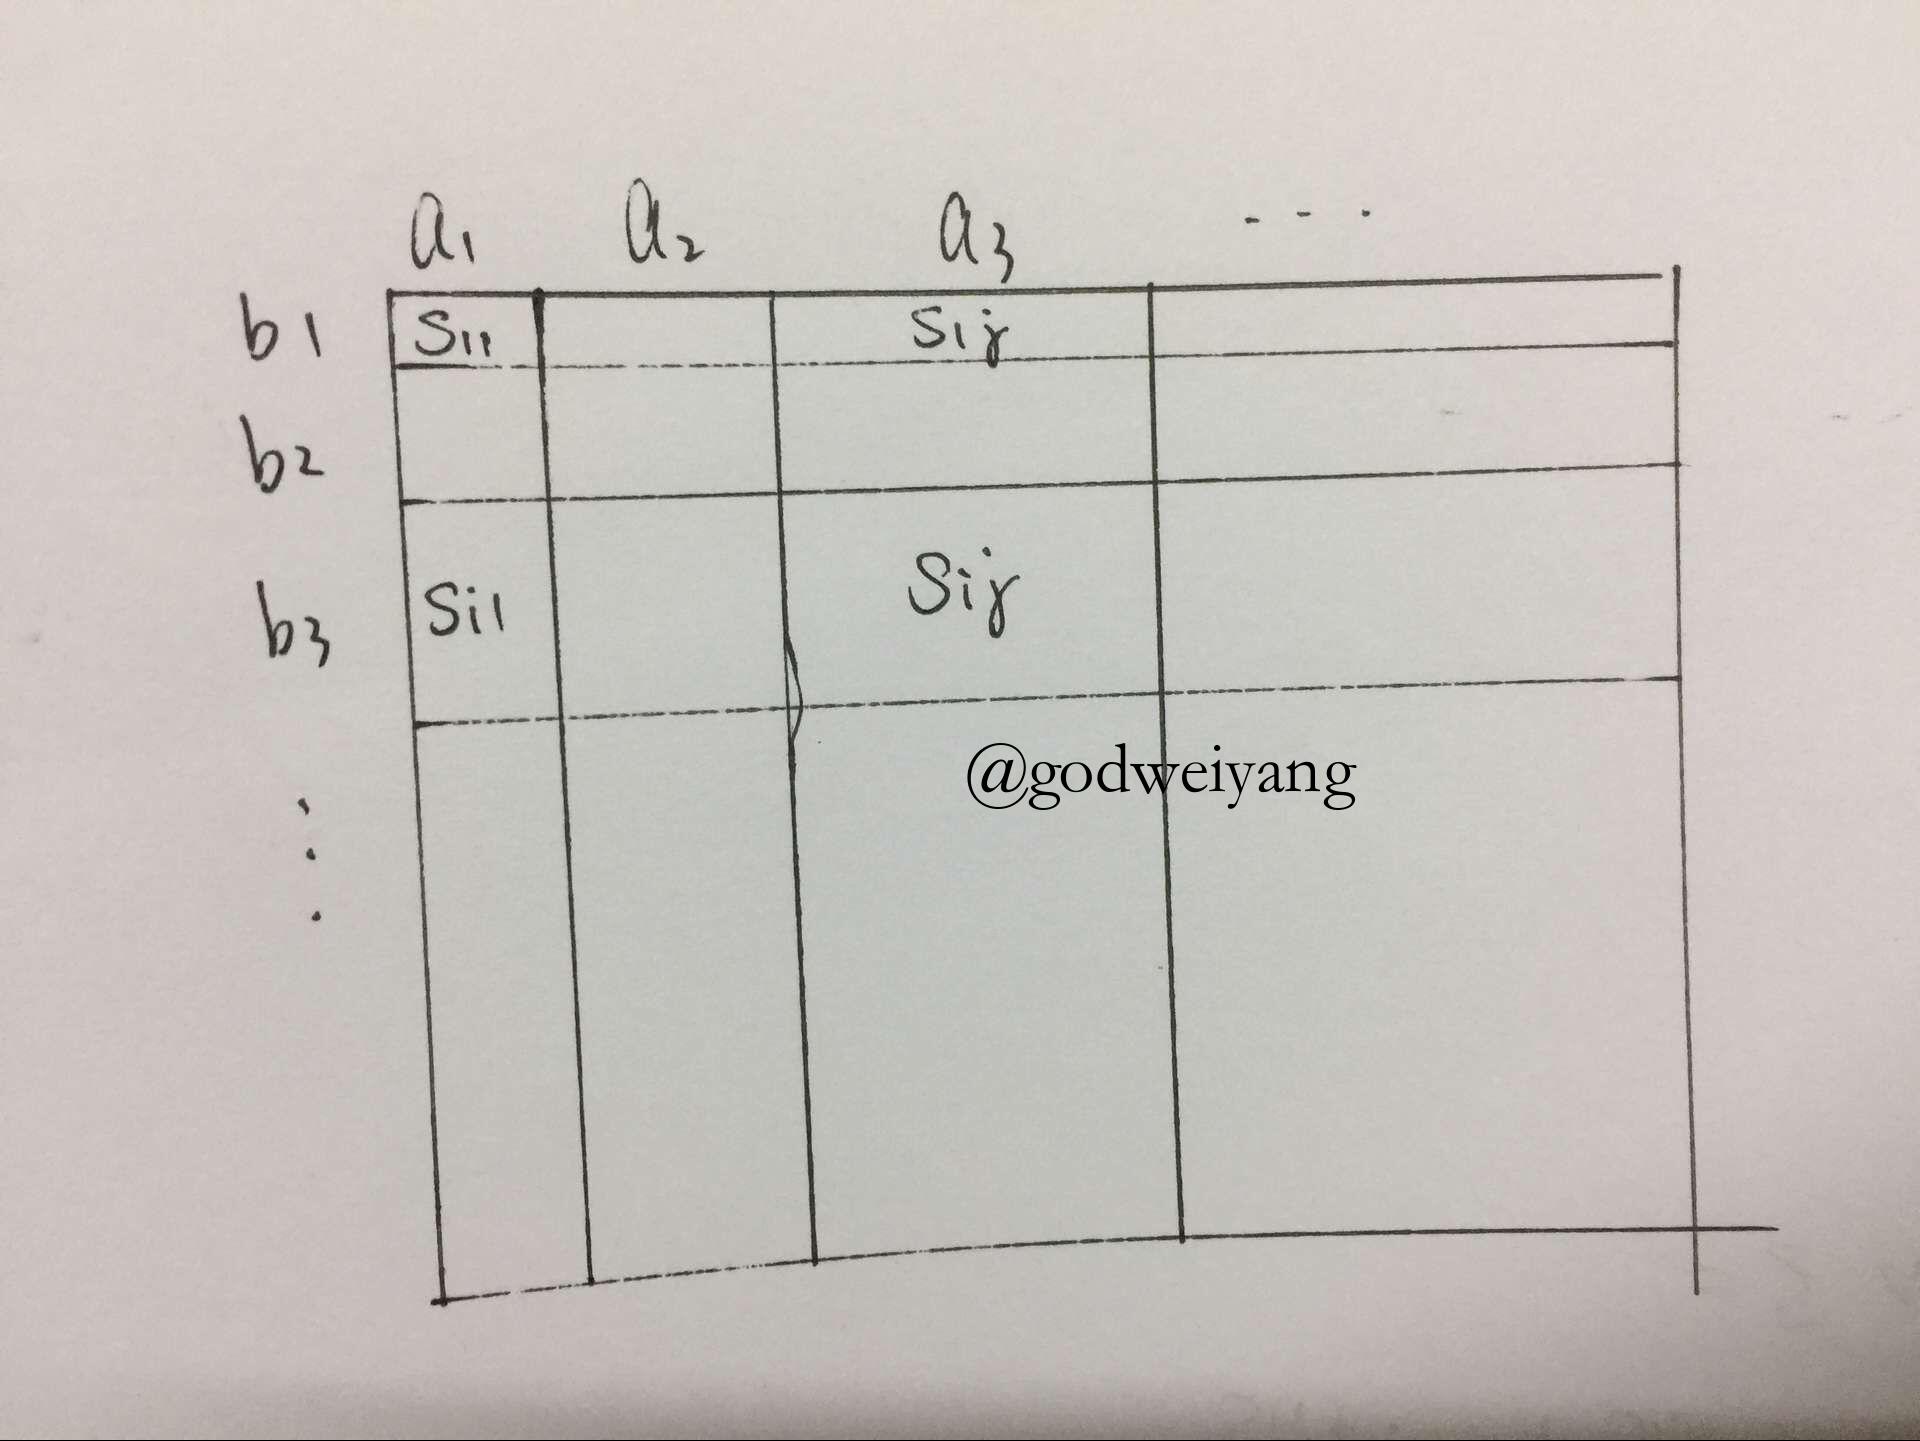 a1 a2 a3 ...
b1 S11 S1j
b2
b3 Si1 Sij
⋮
@godweiyang